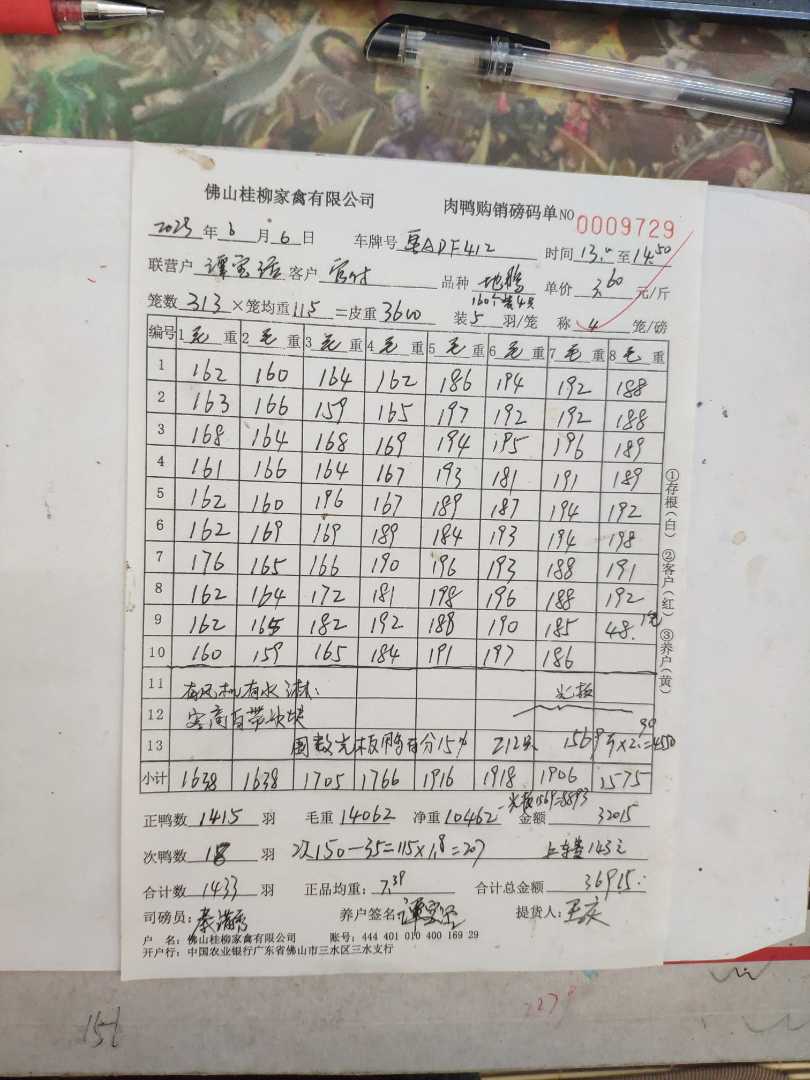 佛山桂柳家禽有限公司 肉鸭购销磅码单 NO 0009729
2025年6月6日 车牌号 粤ADF412 时间 13.00至14.50
联营户 客户 官付 品种 地鸭 单价 3.60 元/斤
160个装4只
笼数 313 ×笼均重 11.5 =皮重 3600 装 5 羽/笼 称 4 笼/磅
编号 1 毛 重 2 毛 重 3 毛 重 4 毛 重 5 毛 重 6 毛 重 7 毛 重 8 毛 重
1 162 160 164 162 186 194 192 188
2 163 166 159 165 197 192 192 188
3 168 164 168 169 194 195 196 189
4 161 166 164 167 193 181 191 189
5 162 160 196 167 189 187 194 192
6 162 169 169 189 184 193 194 198
7 176 165 166 190 196 193 188 191
8 162 164 172 181 198 196 188 192
9 162 165 182 192 188 190 185 48.
10 160 159 165 184 191 197 186
11 有风机有水淋: 光板
12 客商自带冰块
13 国数光板鸭百分15% 212只 1569斤×2.90=4550
小计 1638 1638 1705 1766 1916 1918 1906 1575
光板1569=8893
正鸭数 1415 羽 毛重 14062 净重 10462 金额 32015
次鸭数 18 羽 次150-35=115×1.8=207 上车费143元
合计数 1433 羽 正品均重: 7.39 合计总金额 36915.
司磅员: 养户签名: 提货人:
户 名:佛山桂柳家禽有限公司 账号:444 401 010 400 169 29
开户行:中国农业银行广东省佛山市三水区三水支行
①存根(白) ②客户(红) ③养户(黄)